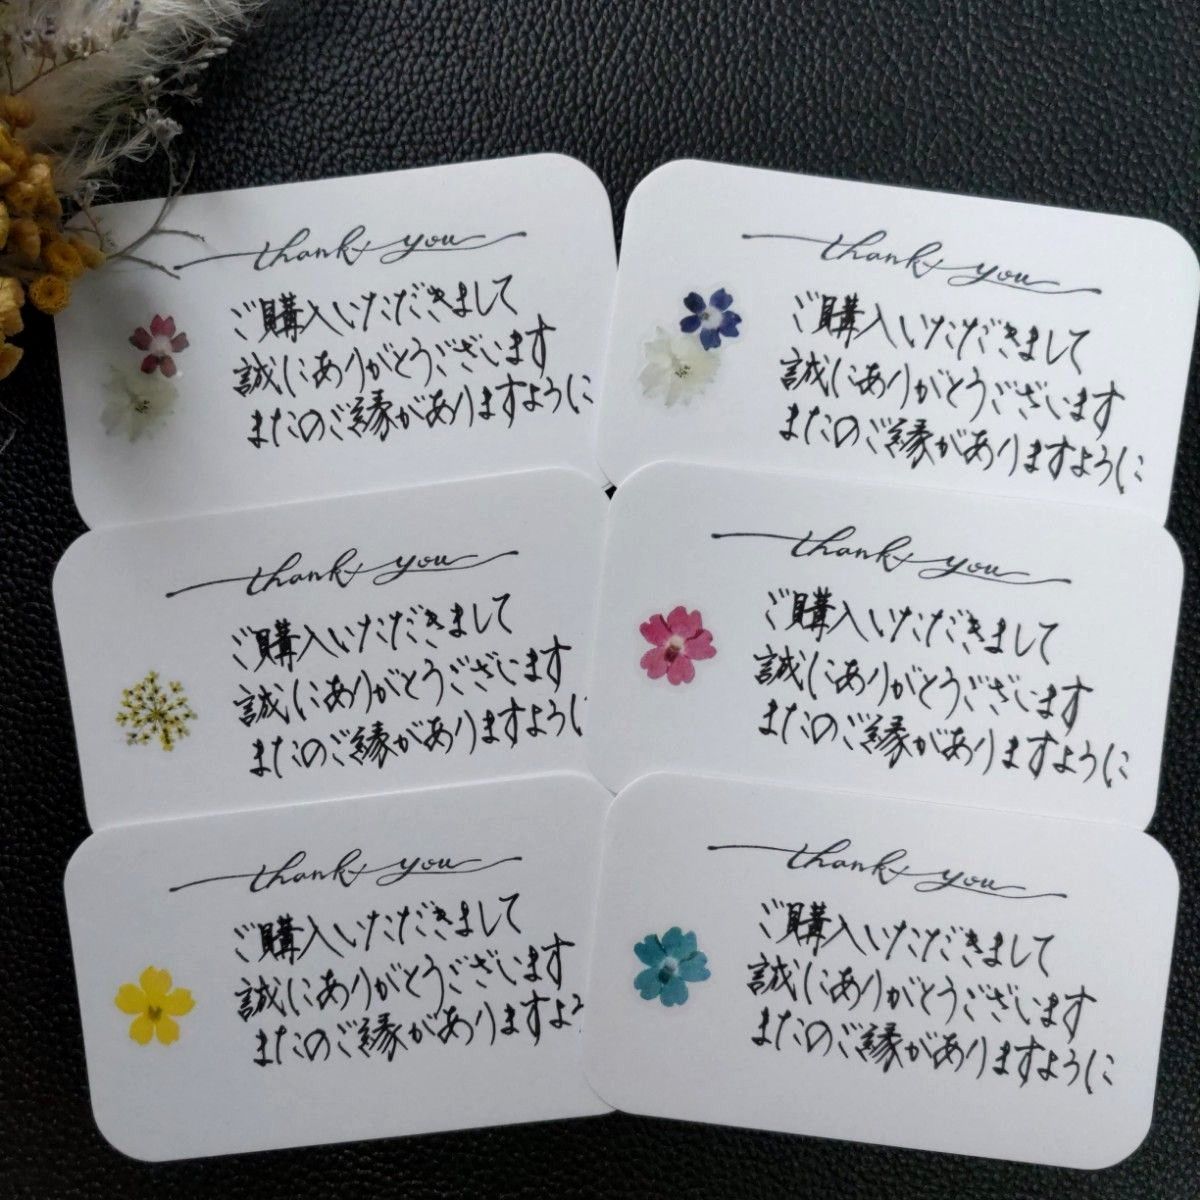 thank you
ご購入いただきまして
誠にありがとうございます
またのご縁がありますように
thank you
ご購入いただきまして
誠にありがとうございます
またのご縁がありますように
thank you
ご購入いただきまして
誠にありがとうございます
またのご縁がありますように
thank you
ご購入いただきまして
誠にありがとうございます
またのご縁がありますように
thank you
ご購入いただきまして
誠にありがとうございます
またのご縁がありますよ
thank you
ご購入いただきまして
誠にありがとうございます
またのご縁がありますように